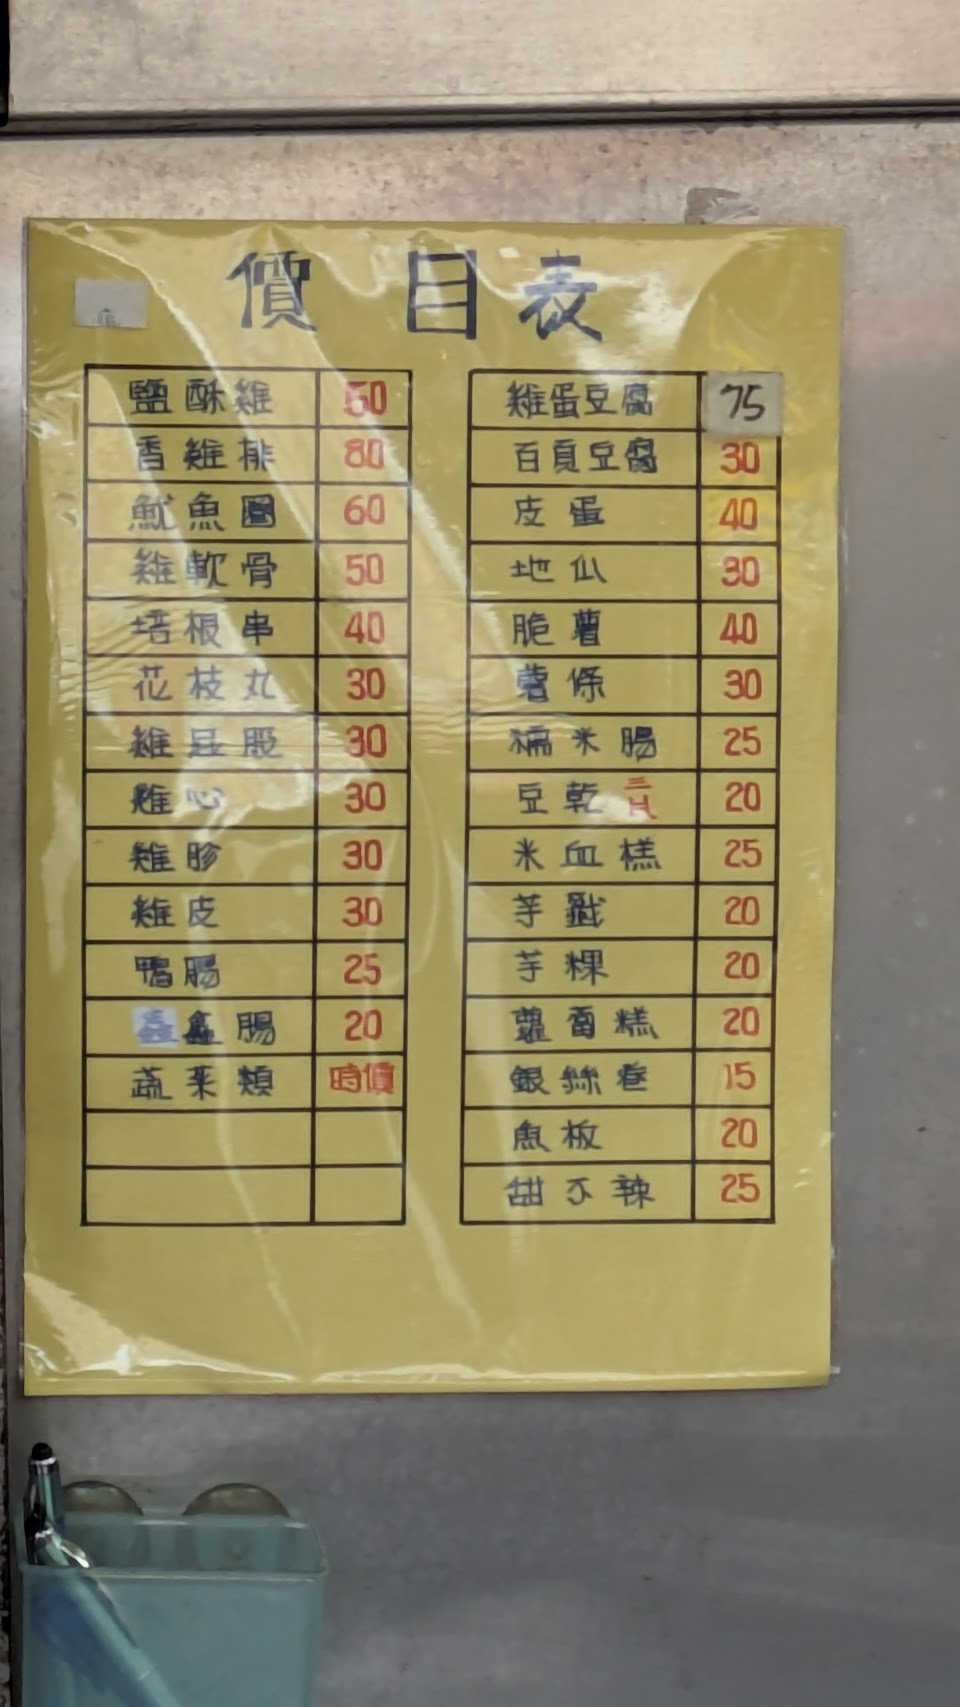 價目表
鹽酥雞 50
香雞排 80
魷魚圈 60
雞軟骨 50
培根串 40
花枝丸 30
雞屁股 30
雞心 30
雞胗 30
雞皮 30
鴨腸 25
鑫鑫腸 20
蔬菜類 時價
雞蛋豆腐 75
百頁豆腐 30
皮蛋 40
地瓜 30
脆薯 40
薯條 30
糯米腸 25
豆乾 三片 20
米血糕 25
芋籤 20
芋粿 20
蘿蔔糕 20
銀絲卷 15
魚板 20
甜不辣 25